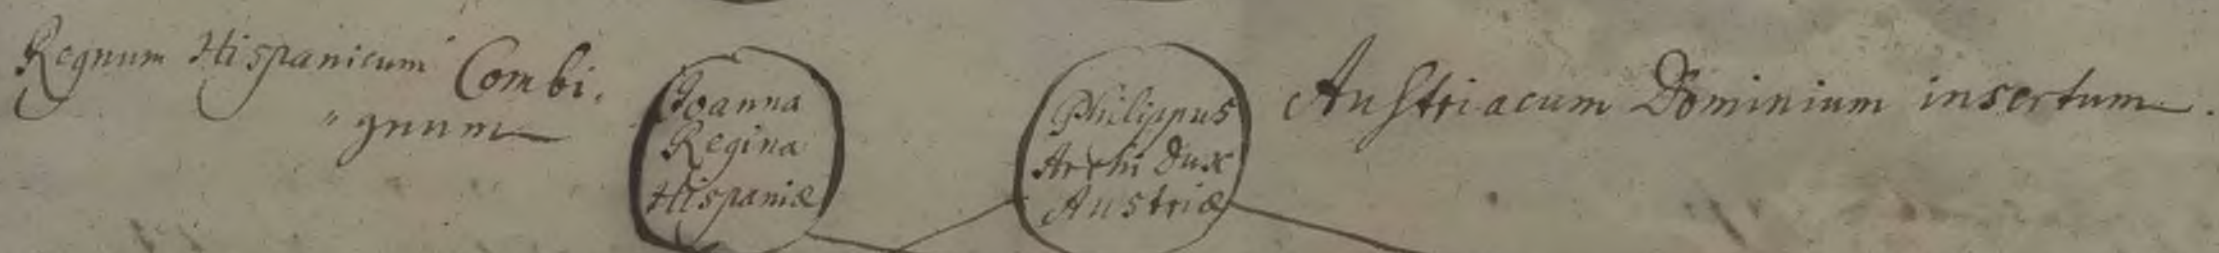 Regnum Hispanicum Combi.
"gnum
Joanna
Regina
Hispaniæ
Philippus
Archi Dux
Austriæ
Austriacum Dominium insertum.